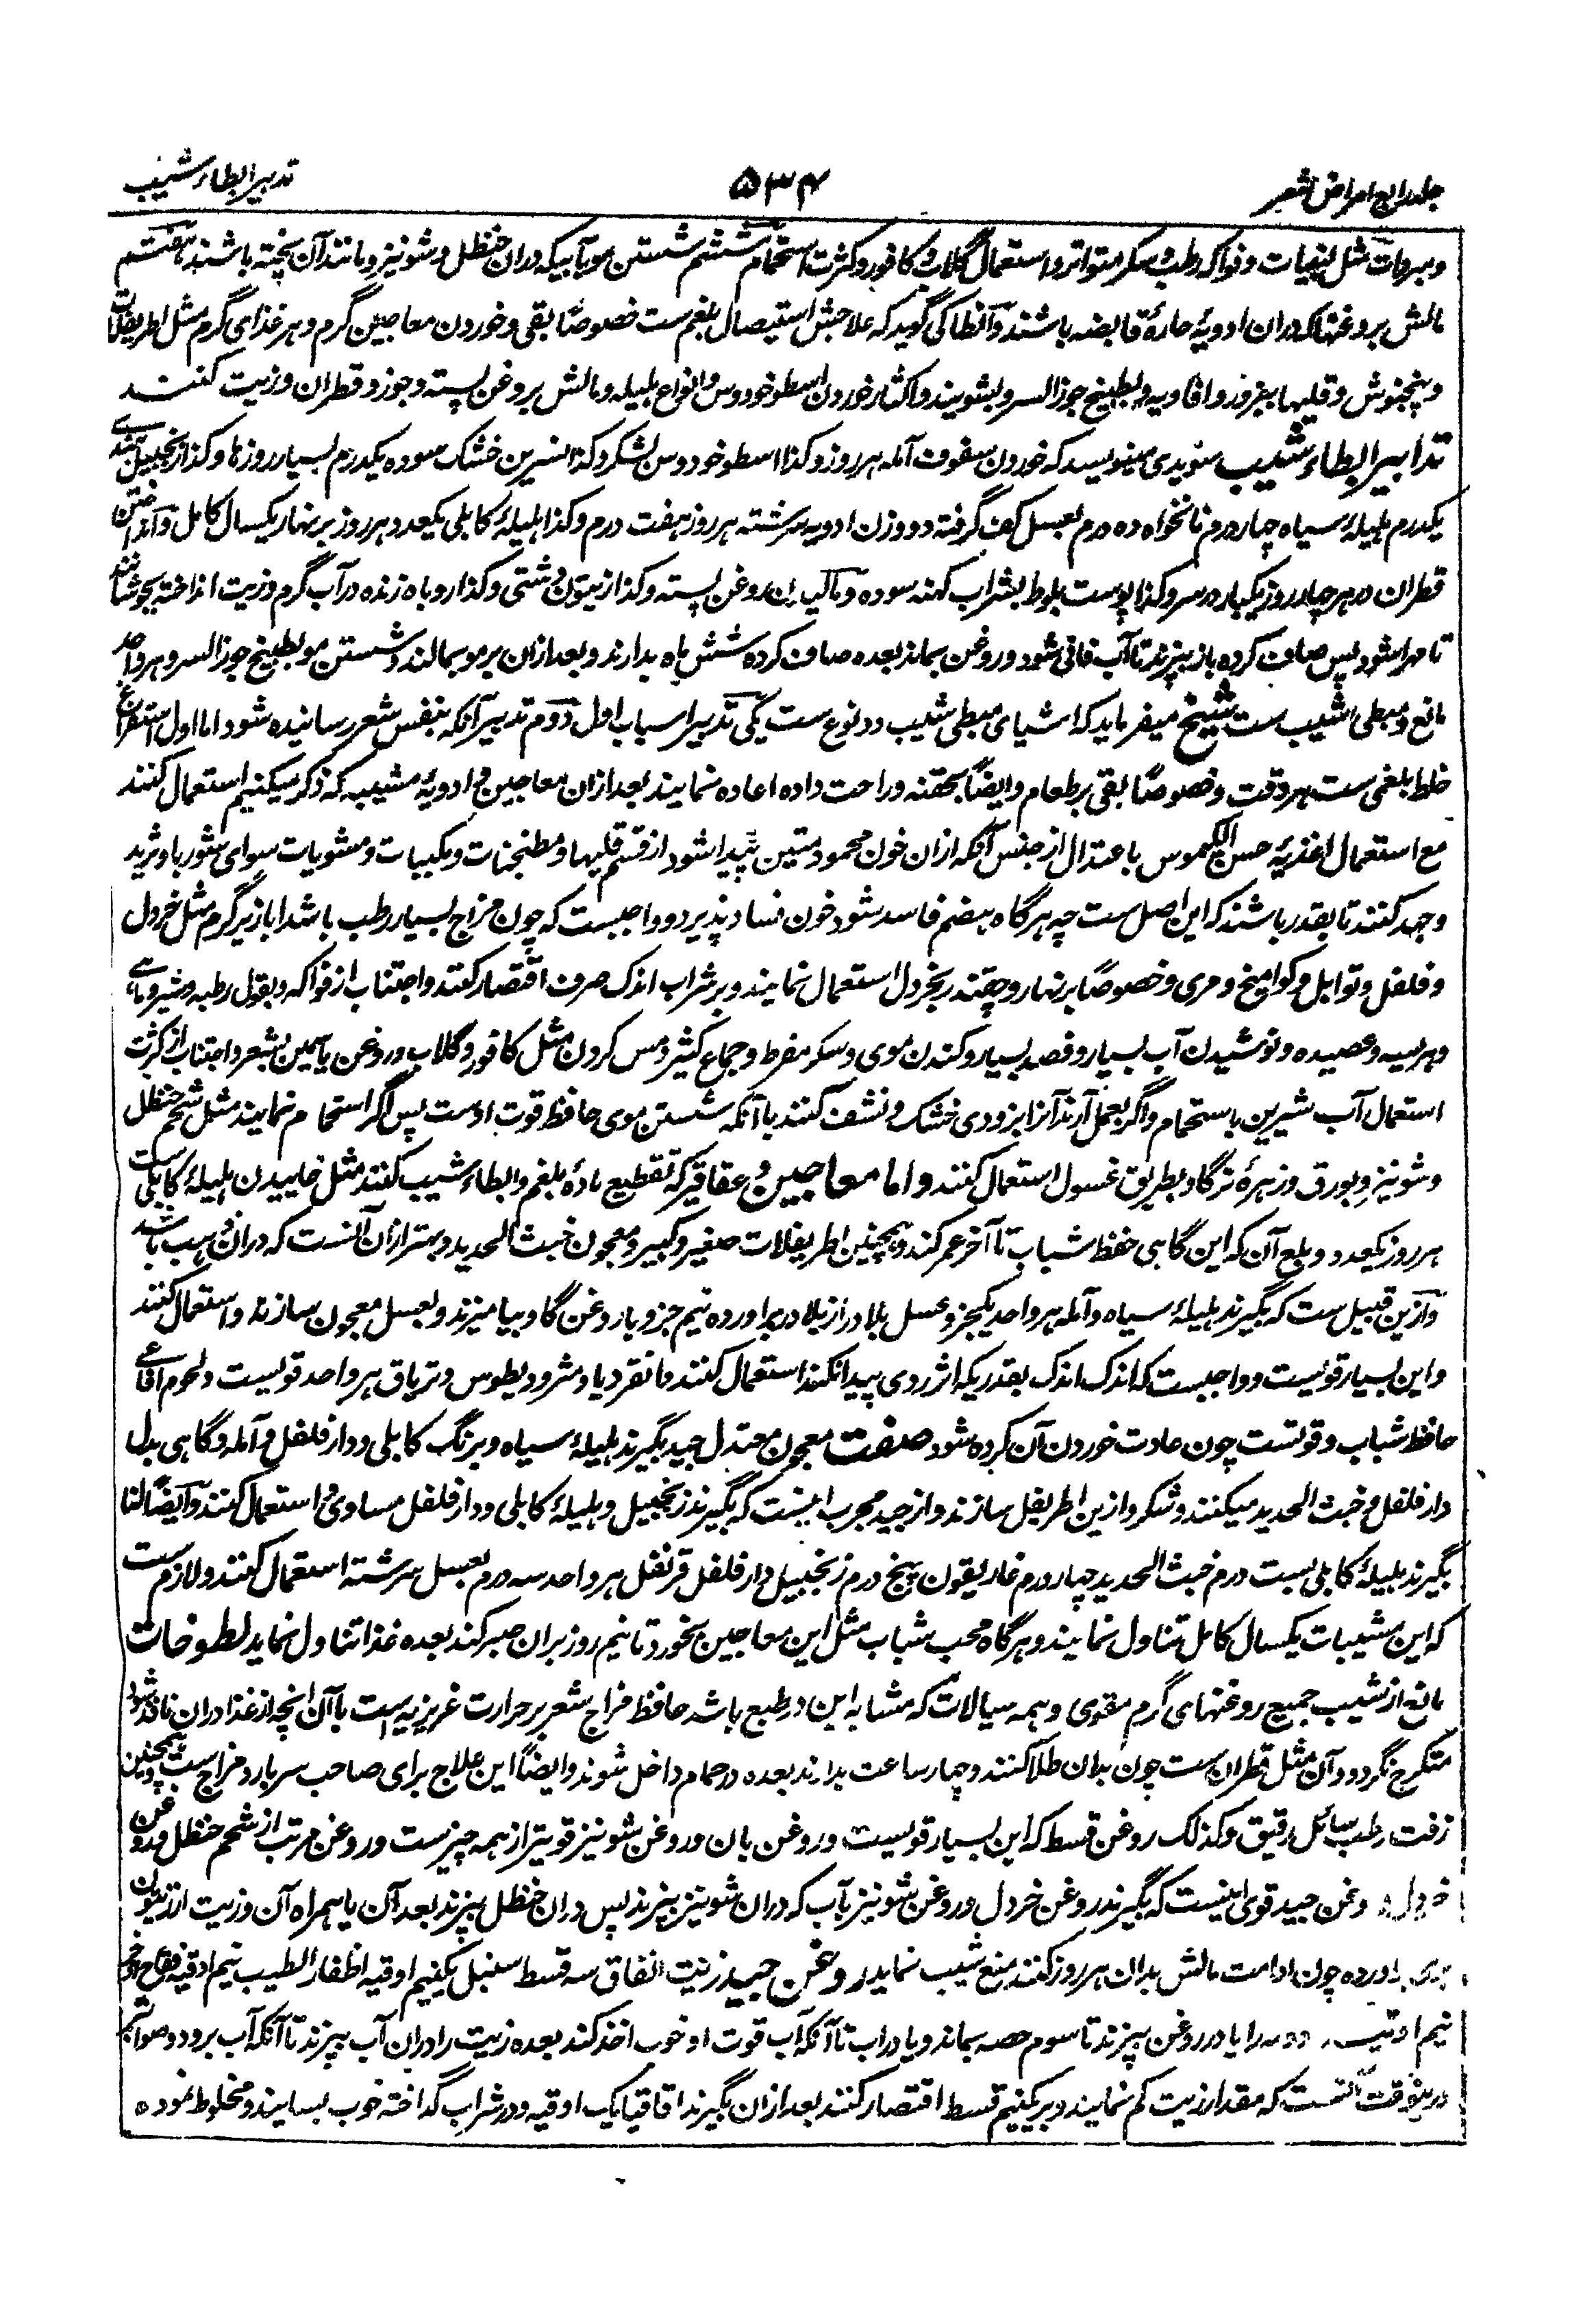 جلد رابع امراض شعر
۵۳۴
تدبیر ابطاء شیب
و مبردات مثل لبنیات و فواکه رطب و سکر متواتر و استعمال گلاب و کافور و کثرت استحمام ششم شستن مو بآبیکه دران حنظل و شونیز و مانند آن پخته باشند هفتم
مالش بروغنهائیکه دران ادویهٔ حارهٔ قابضه باشند و انطاکی گوید که علاجش استیصال بلغم ست خصوصاً بقی و خوردن معاجین گرم و هر غذای گرم مثل اطریفلات
و پنجنوش و قلیها ببزور و افاویه و بطبیخ جوز السرو بشویند و اکثار خوردن اسطوخودوس و انواع هلیله و مالش بروغن پسته و جوز و قطران و زیت کنند
تدابیر ابطاء شیب سویدی مینویسد که خوردن سفوف آمله هر روز و کذا اسطوخودوس بشکر و کذا نسرین خشک سوده یکدرم بسیار روزها و کذا زنجبیل هندی
یکدرم هلیلهٔ سیاه چهار درم نانخواه ده درم بعسل کف گرفته دو وزن ادویه سرشته هر روز هفت درم و کذا هلیلهٔ کابلی یکعدد هر روز بر نهار یکسال کامل و انداختن
قطران در هر چهار روز یکبار در سر و کذا پوست بلوط بشراب کهنه سوده و مالیدن روغن پسته و کذا زیتون دشتی و کذا روباه زنده در آب گرم و زیت انداخته بجوشانند
تا مهرا شود پس صاف کرده باز بپزند تا آب فانی شود و روغن بماند بعده صاف کرده شش ماه بدارند و بعد ازان بر مو بمالند و شستن مو بطبیخ جوز السرو هر واحد
مانع و مبطی شیب ست شیخ میفرماید که اشیای مبطی شیب دو نوع ست یکی تدبیر اسباب اول دوم تدبیر آنکه بنفس شعر رسانیده شود اما اول استفراغ
خلط بلغمی ست هر وقت و خصوصاً بقی بر طعام و ایضاً بحقنه و راحت داده اعاده نمایند بعد ازان معاجین و ادویهٔ مشیبه که ذکر میکنیم استعمال کنند
مع استعمال اغذیهٔ حسن الکیموس باعتدال از جنس آنکه ازان خون محمود متین پیدا شود از قسم قلیها و مطنجنات و مکببات و مشویات سوای شوربا و ثرید
و جهد کنند تا بقدر باشند که این اصل ست چه هرگاه هضم فاسد شود خون فساد پذیرد و واجبست که چون مزاج بسیار رطب باشد ابازیر گرم مثل خردل
و فلفل و توابل و کوامیخ و مری و خصوصاً بر نهار و چقندر بخردل استعمال نمایند و بر شراب اندک صرف اقتصار کنند و اجتناب از فواکه و بقول رطبه و شیر و ماهی
و هریسه و عصیده و نوشیدن آب بسیار و فصد بسیار و کندن موی و سکر مفرط و جماع کثیر و مس کردن مثل کافور و گلاب و روغن یاسمین بشعر و اجتناب از کثرت
استعمال آب شیرین باستحمام و اگر بعمل آرند آنرا بزودی خشک و نشف کنند با آنکه شستن موی حافظ قوت اوست پس اگر استحمام نمایند مثل شحم حنظل
و شونیز و بورق و زهرهٔ نرگاو بطریق غسول استعمال کنند و اما معاجین و عقاقیر که تقطیع مادهٔ بلغم و ابطاء شیب کنند مثل خاییدن هلیلهٔ کابلی ست
هر روز یکعدد و بلع آن که این گاهی حفظ شباب تا آخر عمر کند و همچنین اطریفلات صغیر و کبیر و معجون خبث الحدید و بهتر ازان آنست که دران ذهب باشد
و ازین قبیل ست که بگیرند هلیلهٔ سیاه و آمله هر واحد یکجز و عسل بلادر از بلادر برآورده نیم جز و با روغن گاو بیامیزند و بعسل معجون سازند و استعمال کنند
و این بسیار قویست و واجبست که اندک اندک بقدریکه اثر ردی پیدا نکند استعمال کنند و انقردیا و مثرودیطوس و تریاق هر واحد قویست و لحوم افاعی
حافظ شباب و قوتست چون عادت خوردن آن کرده شود صفت معجون معتدل جید بگیرند هلیلهٔ سیاه و برنگ کابلی و دار فلفل و آمله و گاهی بدل
دار فلفل خبث الحدید میکنند و شکر و ازین اطریفل سازند و از جید مجرب اینست که بگیرند زنجبیل و هلیلهٔ کابلی و دار فلفل مساوی و استعمال کنند و ایضاً لنا
بگیرند هلیلهٔ کابلی بست درم خبث الحدید چهار درم غاریقون پنج درم زنجبیل دار فلفل قرنفل هر واحد سه درم بعسل سرشته استعمال کنند و لازم ست
که این مشیبات یکسال کامل تناول نمایند و هرگاه محب شباب مثل این معاجین بخورد تا نیم روز بران صبر کند بعده غذا تناول نماید لطوخات
مانع از شیب جمیع روغنهای گرم مقوی و همه سیالات که مشابه این در طبع باشد حافظ مزاج شعر بر حرارت غریزیه است با آن انچه از غذا دران نافذ شود
متکرج نگردد و آن مثل قطران ست چون بدان طلا کنند و چهار ساعت بدارند بعده در حمام داخل شوند و ایضاً این علاج برای صاحب سر بارد مزاج ست و همچنین
زفت رطب سائل رقیق و کذلک روغن قسط که این بسیار قویست و روغن بان و روغن شونیز قویتر از همه چیزست و روغن مرتب از شحم حنظل و روغن
خردل و روغن جید قوی اینست که بگیرند روغن خردل و روغن شونیز بآب که دران شونیز بپزند پس دران حنظل بپزند بعد آن یا همراه آن و زیت از زیتون
بری برآورده چون ادامت مالش بدان هر روز کنند منع شیب نماید روغن جید زیت انفاق سه قسط سنبل یکنیم اوقیه اظفار الطیب نیم اوقیه فقاح اذخر
نیم اوقیه همه را یا در روغن بپزند تا سوم حصه بماند و یا در آب تا آنکه آب قوت او خوب اخذ کند بعده زیت را دران آب بپزند تا آنکه آب برود و صواب
درینوقت آنست که مقدار زیت کم نمایند و بر یکنیم قسط اقتصار کنند بعد ازان بگیرند اقاقیا یک اوقیه و در شراب گداخته خوب بسایند و مخلوط نموده